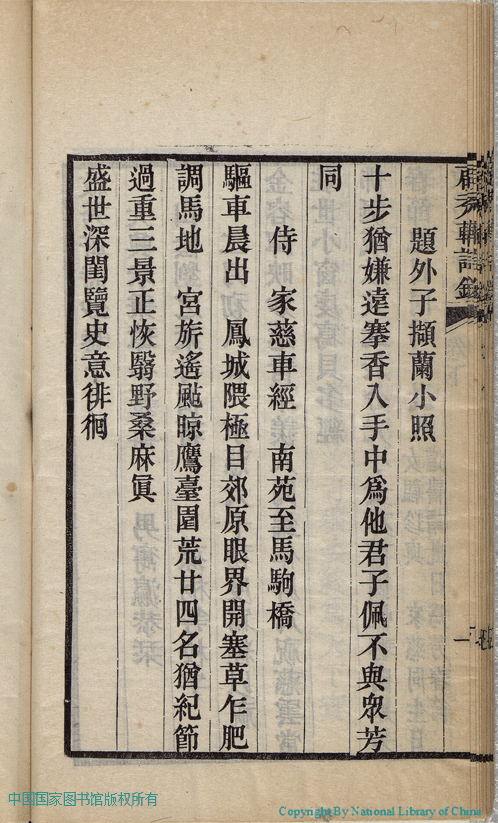 秀軒詩錄
一
題外子擷蘭小照
十步猶嫌遠搴香入手中爲他君子佩不與眾芳
同
侍　家慈車經　南苑至馬駒橋
驅車晨出　鳳城隈極目郊原眼界開塞草乍肥
調馬地　宮旂遙颭晾鷹臺圍荒廿四名猶紀節
過重三景正恢翳野桑麻眞
盛世深閨覽史意徘徊
中国国家图书馆版权所有
Copyright By National Library of China